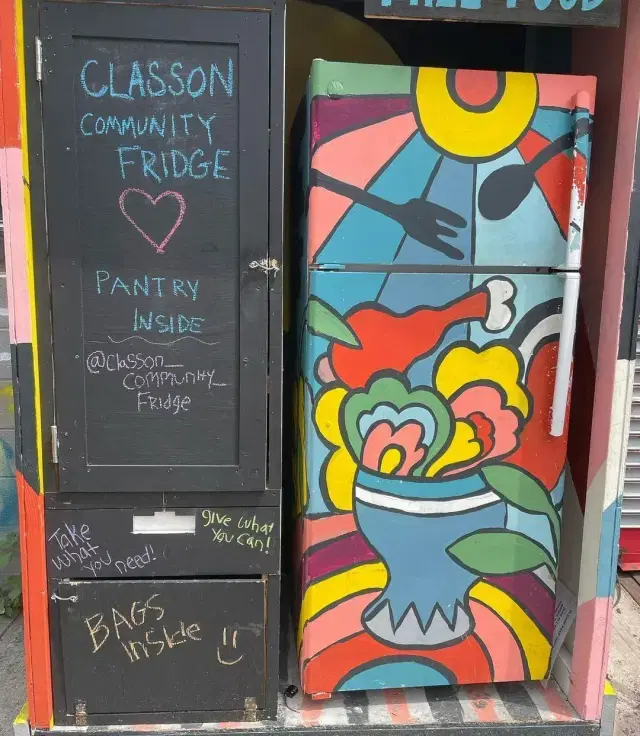 FREE FOOD
CLASSON
COMMUNITY
FRIDGE
PANTRY
INSIDE
@Classon_
Community_
Fridge
Take
what
you need!
give what
you can!
BAGS
Inside